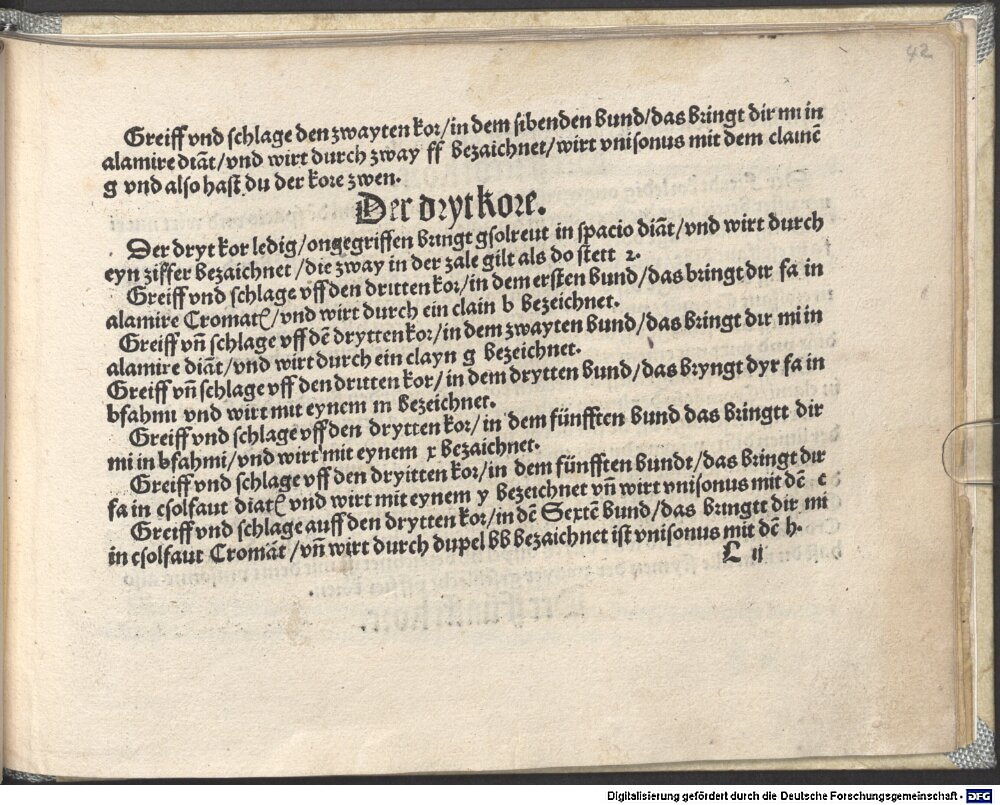 42
Greiff vnd schlage den zwayten kor/in dem sibenden bund/das bringt dir mi in
alamire diāt/vnd wirt durch zway ff bezaichnet/wirt vnisonus mit dem clainē
g vnd also hast du der kore zwen.
Der dryt kore.
Der dryt kor ledig/ongegriffen bringt gsolreut in spacio diāt/vnd wirt durch
eyn ziffer bezaichnet/die zway in der zale gilt als do stett 2.
Greiff vnd schlage vff den dritten kor/in dem ersten bund/das bringt dir fa in
alamire Cromatꝭ/vnd wirt durch ein clain b bezeichnet.
Greiff vn̄ schlage vff dē drytten kor/in dem zwayten bund/das bringt dir mi in
alamire diāt/vnd wirt durch ein clayn g bezeichnet.
Greiff vn̄ schlage vff den dritten kor/in dem drytten bund/das bryngt dyr fa in
bfahmi vnd wirt mit eynem m bezeichnet.
Greiff vnd schlage vff den drytten kor/in dem fünfften bund das bringtt dir
mi in bfahmi/vnd wirt mit eynem x bezaichnet.
Greiff vnd schlage vff den dryitten kor/in dem fünfften bundt/das bringt dir
fa in csolfaut diatꝭ vnd wirt mit eynem y bezeichnet vn̄ wirt vnisonus mit dē c
Greiff vnd schlage auff den drytten kor/in dē Sextē bund/das bringtt dir mi
in csolfaut Cromāt/vn̄ wirt durch dupel bb bezaichnet ist vnisonus mit dē h.
L ij
Digitalisierung gefördert durch die Deutsche Forschungsgemeinschaft - DFG